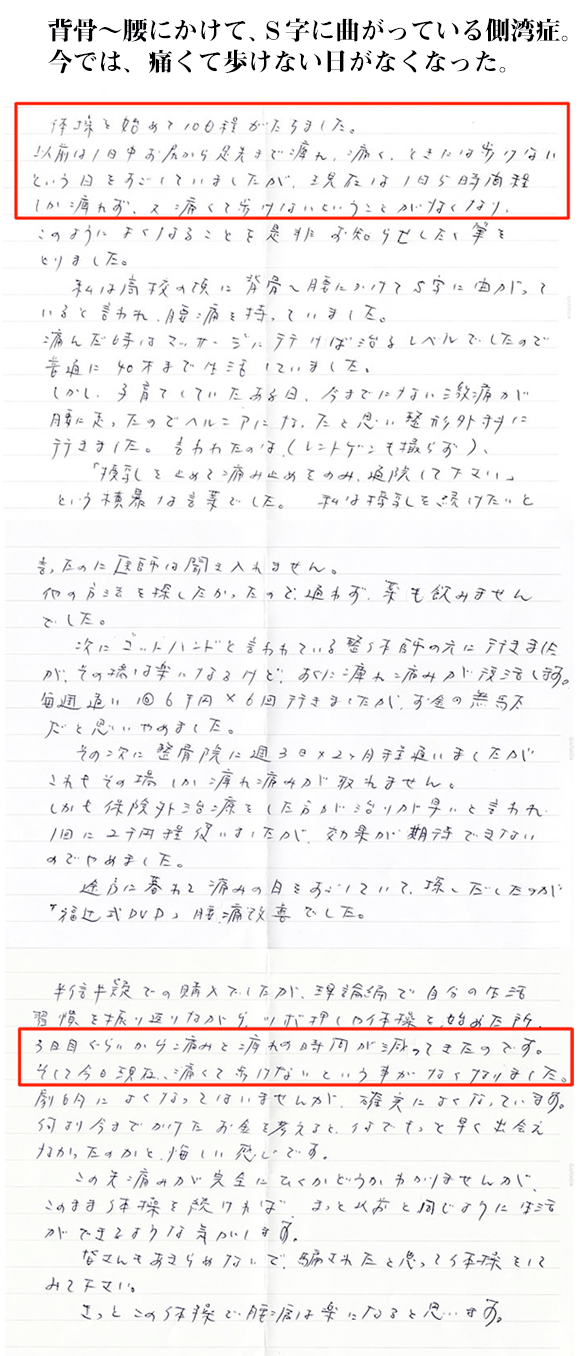 背骨～腰にかけて、S字に曲がっている側湾症。
今では、痛くて歩けない日がなくなった。
体操を始めて10日程がたちました。
以前は1日中お尻から足先まで痺れ、痛く、ときには歩けない
という日をすごしていましたが、現在は1日5時間程
しか痺れず、又痛くて歩けないということがなくなり、
このようによくなることを是非お知らせしたく筆を
とりました。
私は高校の頃に背骨～腰にかけてS字に曲がって
いると言われ、腰痛を持っていました。
痛んだ時はマッサージに行けば治るレベルでしたので
普通に40才まで生活していました。
しかし、子育てしていたある日、今までにない激痛が
腰に走ったのでヘルニアになったと思い整形外科に
行きました。言われたのは、(レントゲンも撮らず)、
「授乳を止めて痛み止めをのみ、通院して下さい」
という横暴な言葉でした。私は授乳を続けたいと
言ったのに医師は聞き入れません。
他の方法を探したかったので、通わず、薬も飲みません
でした。
次にゴットハンドと言われている整体師の元に行きました
が、その場は楽になるけど、すぐに痺れ痛みが復活します。
毎週通い1回6千円×6回行きましたが、お金の無駄
だと思いやめました。
その次に整骨院に週3日×2ヶ月程通いましたが
これもその場しか痺れ痛みが取れません。
しかも保険外治療をした方が治りが早いと言われ、
1回に2千円程使いましたが、効果が期待できない
のでやめました。
途方に暮れて痛みの日をすごしていて、探しだしたのが
「福辻式DVD」腰痛改善でした。
半信半疑での購入でしたが、理論編で自分の生活
習慣を振り返りながら、ツボ押しや体操を始めた所、
3日目ぐらいから痛みと痺れの時間が減ってきたのです。
そして今日現在、痛くて歩けないという事がなくなりました。
劇的によくなってはいませんが、確実によくなっています。
何より今までかけたお金を考えると、何でもっと早く出会え
なかったのかと、悔しい感じです。
この先痛みが完全にひくかどうかわかりませんが、
このまま体操を続ければ、きっと以前と同じように生活
ができるような気がします。
なさんもあきらめないで、騙されたと思って体操をして
みて下さい。
きっとこの体操で腰痛は楽になると思います。